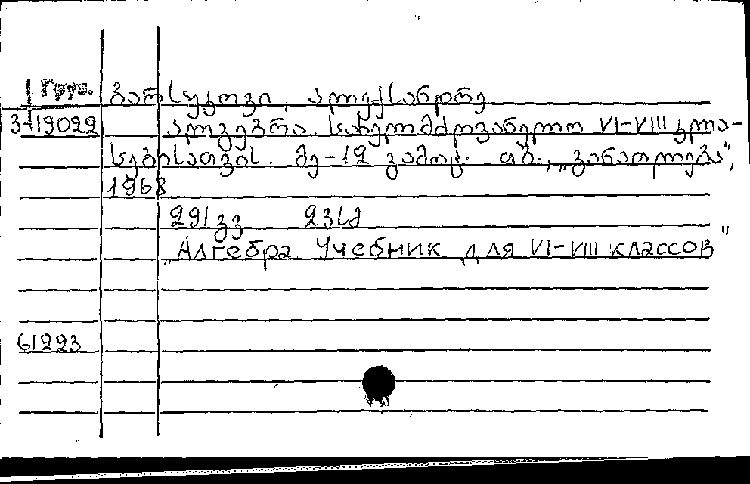 Груз. ბარსუკოვი, ალექსანდრე
3-19022 ალგებრა. სახელმძღვანელო VI-VIII კლა-
სებისათვის. მე-12 გამოც. თბ., „განათლება“,
1968
291 გვ
„Алгебра. Учебник для VI-VIII классов"
61223